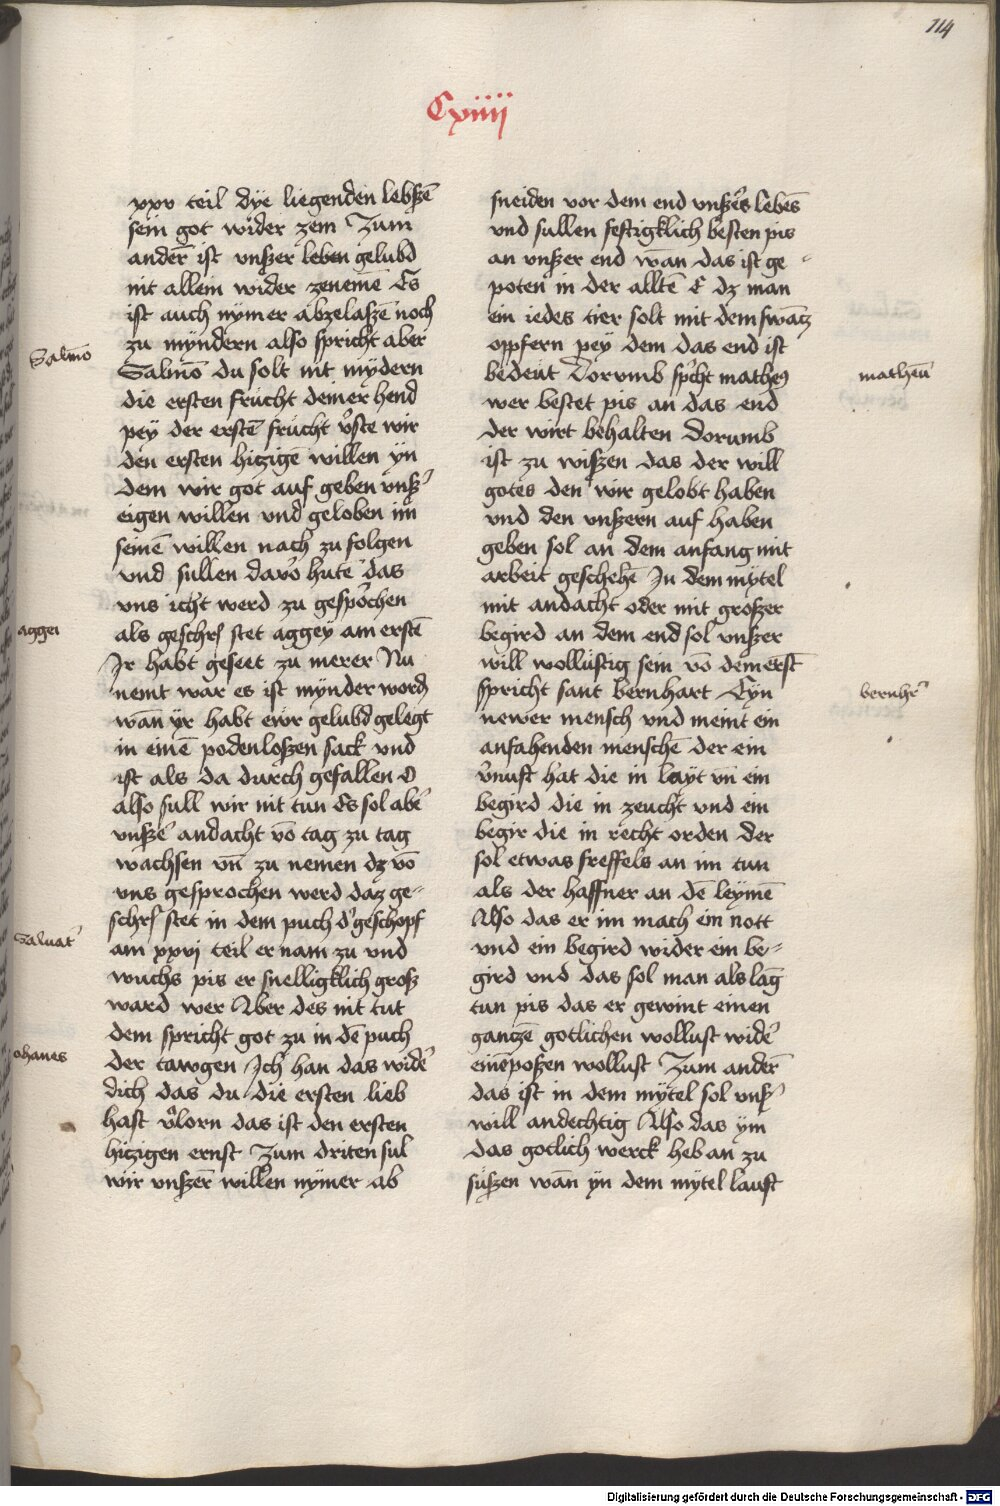 114
Cxiiij
xxv teil dÿe liegenden lebßē
sein got wider zem Zum
anderr̄ ist vnßer leben gelubd
nit allein wider zenemē Es
ist auch nÿmer abzelaßē noch
zu mÿndern also spricht aber
Salmō
Salmō du solt nit mÿdern
die ersten frücht deiner hend
peÿ der erstē frücht v̓ste wir
den ersten hiczigē willen ÿn
dem wir got auf geben vnß̓
eigen willen vnd geloben im
seinē willen nach zu folgen
vnd sullen davō hute das
vns icht werd zu gespochen
aggei
als geschrſ stet aggeÿ am erstē
Jr habt geseet zu merer Nu
nemt war es ist mÿnder wordɜ
wan̄ ÿr habt ewr gelubd gelegt
in einē podenloßen sack vnd
ist als da durch gefallen O
also sull wir nit tun Es sol abe̓
vnße̓ andacht vō tag zu tag
wachsen vn̄ zu nemen dz vō
vns gesprochen werd daz ge-
schrſ stet in dem puch d̓ geschopf
Saluat̓
am xxvj teil er nam zu vnd
wuchs pis er snelligklich groß
ward wer Aber des nit tut
dem spricht got zu in dē puch
ohanes
der tawgen Jch han das wide̓
dich das du die ersten lieb
hast v̓lorn das ist den ersten
hiczigen ernst Zum driten sul
wir vnßerr̄ willen nÿmer ab
sneiden vor dem end vnßers lebēs
vnd sullen festigklich besten pis
an vnßer end wan̄ das ist ge-
poten in der alltē E dz man
ein iedes tier solt mit dem swācz
opfern peÿ dem das end ist
matheū
bedeut Dorumb sp̓cht matheꝰ
wer bestet pis an das end
der wirt behalten Dorumb
ist zu wißen das der will
gotes den wir gelobt haben
vnd den vnßern auf haben
geben sol an dem anfang mit
arbeit geschehē Jn dem mÿtel
mit andacht oder mit großer
begird an dem end sol vnßer
will wollüstig sein vō dem erst̄
bernhr̓
spricht sant bernhart Eÿn
newer mensch vnd meint ein
anfahenden menschē der ein
v̓nuft hat die in laÿt vn̄ ein
begird die in zeucht vnd ein
begir die in recht orden der
sol etwas freffels an im tun
als der haffner an dē leÿmē
Also das er im mach ein nott
vnd ein begird wider ein be-
gird vnd das sol man als lāg
tun pis das er gewint einen
ganczē gotlichen wollust wide̓
einē poßen wollust Zum ander̄
das ist in dem mÿtel sol vnß̓
will andechtig Also das ÿm
das gotlich werck heb an zu
süßen wan̄ ÿn dem mÿtel lauft
Digitalisierung gefördert durch die Deutsche Forschungsgemeinschaft - DFG